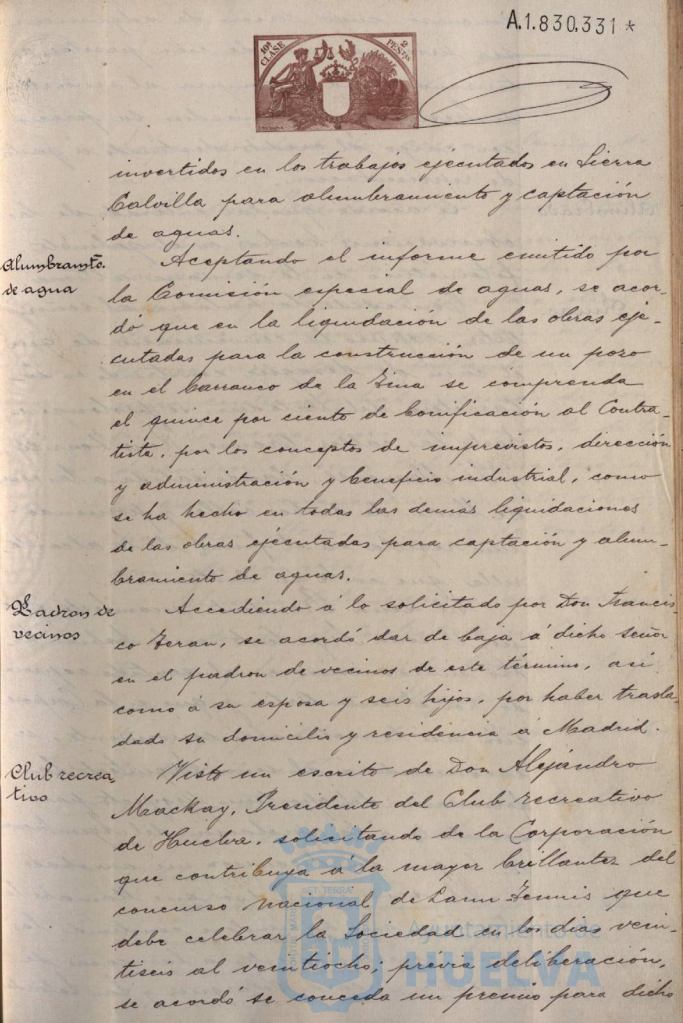 A.1.830.331 *
10ª CLASE
2 PESTAS
invertidos en los trabajos ejecutados en Sierra
Calvilla para alumbramiento y captación
de aguas.
Alumbramto.
de agua
Aceptando el informe emitido por
la Comisión especial de aguas, se acor-
dó que en la liquidación de las obras eje-
cutadas para la construcción de un pozo
en el barranco de la
se comprenda
el quince por ciento de bonificación al Contra-
tista, por los conceptos de imprevistos, dirección
y administración y beneficio industrial, como
se ha hecho en todas las demás liquidaciones
de las obras ejecutadas para captación y alum-
bramiento de aguas.
Padron de
vecinos
Accediendo á lo solicitado por Don Francis-
co Teran, se acordó dar de baja á dicho señor
en el padron de vecinos de este término, así
como á su esposa y seis hijos, por haber trasla-
dado su domicilio y residencia á Madrid.
Club recrea-
tivo
Visto un escrito de Don Alejandro
Mackay, Presidente del Club recreativo
de Huelva, solicitando de la Corporación
que contribuya á la mayor brillantez del
concurso nacional de Lawn-Tennis que
debe celebrar la Sociedad en los dias vein-
tiseis al veintiocho; previa deliberación,
se acordó se conceda un premio para dicho
Ayuntamiento de
HUELVA